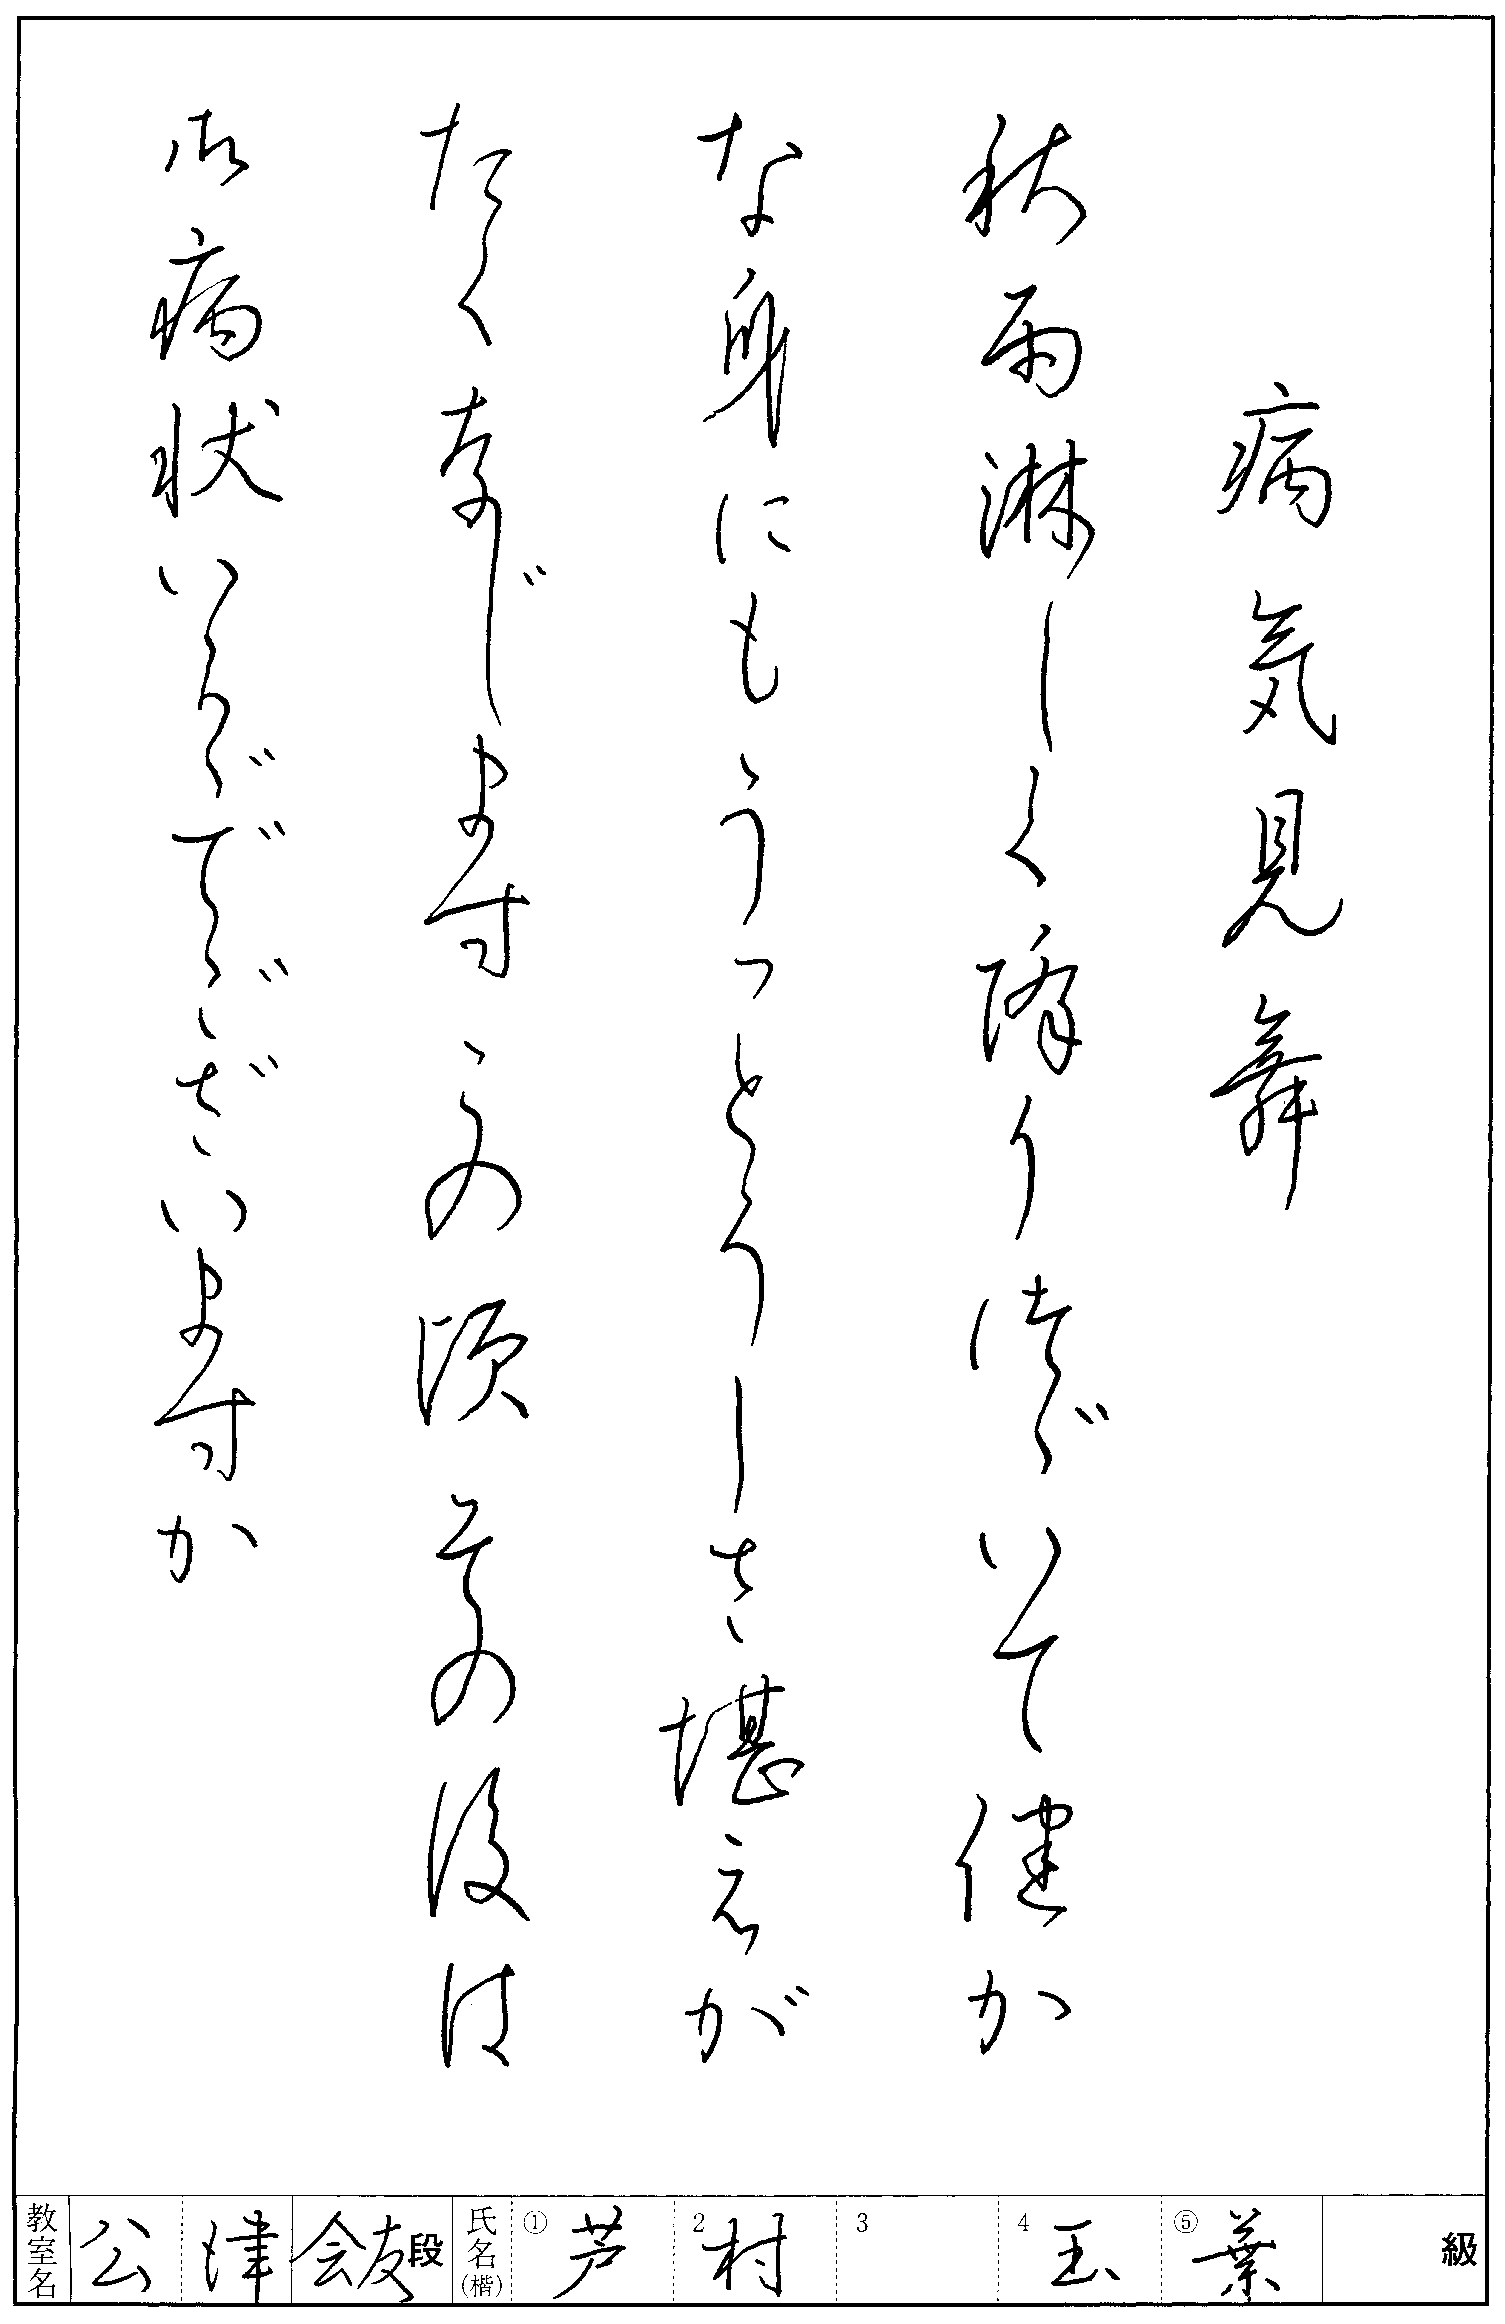 病気見舞
秋雨淋しく降りつづいて健か
な身にもうっとうしさ堪えが
たく存じますこの頃その後は
御病状いかがでございますか
教室名 公津 会友 段 氏名(楷) ① 芦 2 村 3 4 玉 ⑤ 葉 級